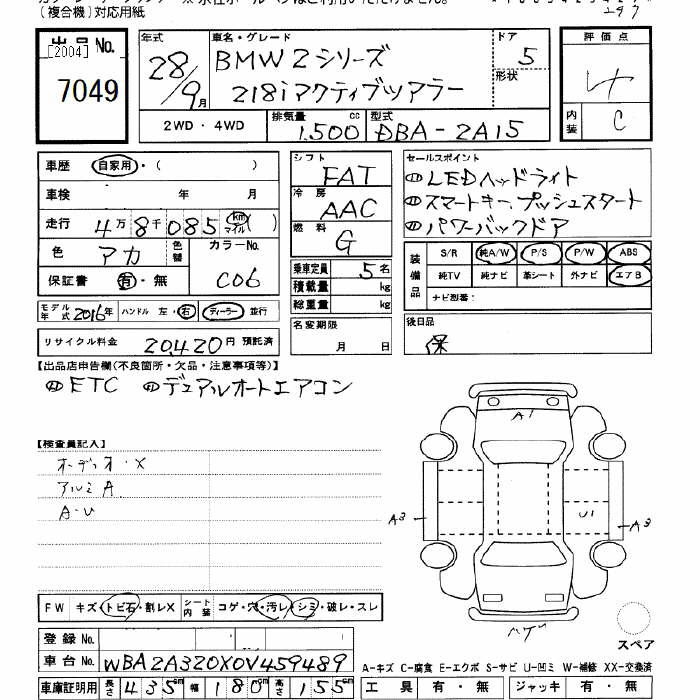 (複合機)対応用紙
297
出品No.
[2004]
7049
年式 車名・グレード ドア 評価点
28/9月 BMW2シリーズ 5
218iアクティブツアラー 形状
4
2WD・4WD 排気量 1.500 cc 型式 DBA-2A15 内装 C
車歴 自家用・( )
車検 年 月
走行 4万8千085 km マイル ( )
色 アカ 色替 カラーNo. C06
保証書 有・無
モデル年式 2016年 ハンドル 左・右 ディーラー 並行
リサイクル料金 20,420円 預託済
シフト FAT
冷房 AAC
燃料 G
乗車定員 5名
積載量 kg
総重量 kg
名変期限
月 日
セールスポイント
LEDヘッドライト
スマートキー、プッシュスタート
パワーバックドア
装備品 S/R 純A/W P/S P/W ABS
純TV 純ナビ 革シート 外ナビ エアB
ナビ型番:
後日品
保
【出品店申告欄(不良箇所・欠品・注意事項等)】
ETC デュアルオートエアコン
【検査員記入】
オーディオ・X
アルミA
A・U
A1
A2 U1 A3
FW キズ・トビ石・割レX シート内装 コゲ・穴・汚レ・シミ・破レ・スレ
登録No.
車台No. WBA2A320X0V459489
車庫証明用 長さ 435cm 幅 180cm 高さ 155cm
スペア
A-キズ C-腐食 E-エクボ S-サビ U-凹ミ W-補修 XX-交換済
工具 有・無 ジャッキ 有・無